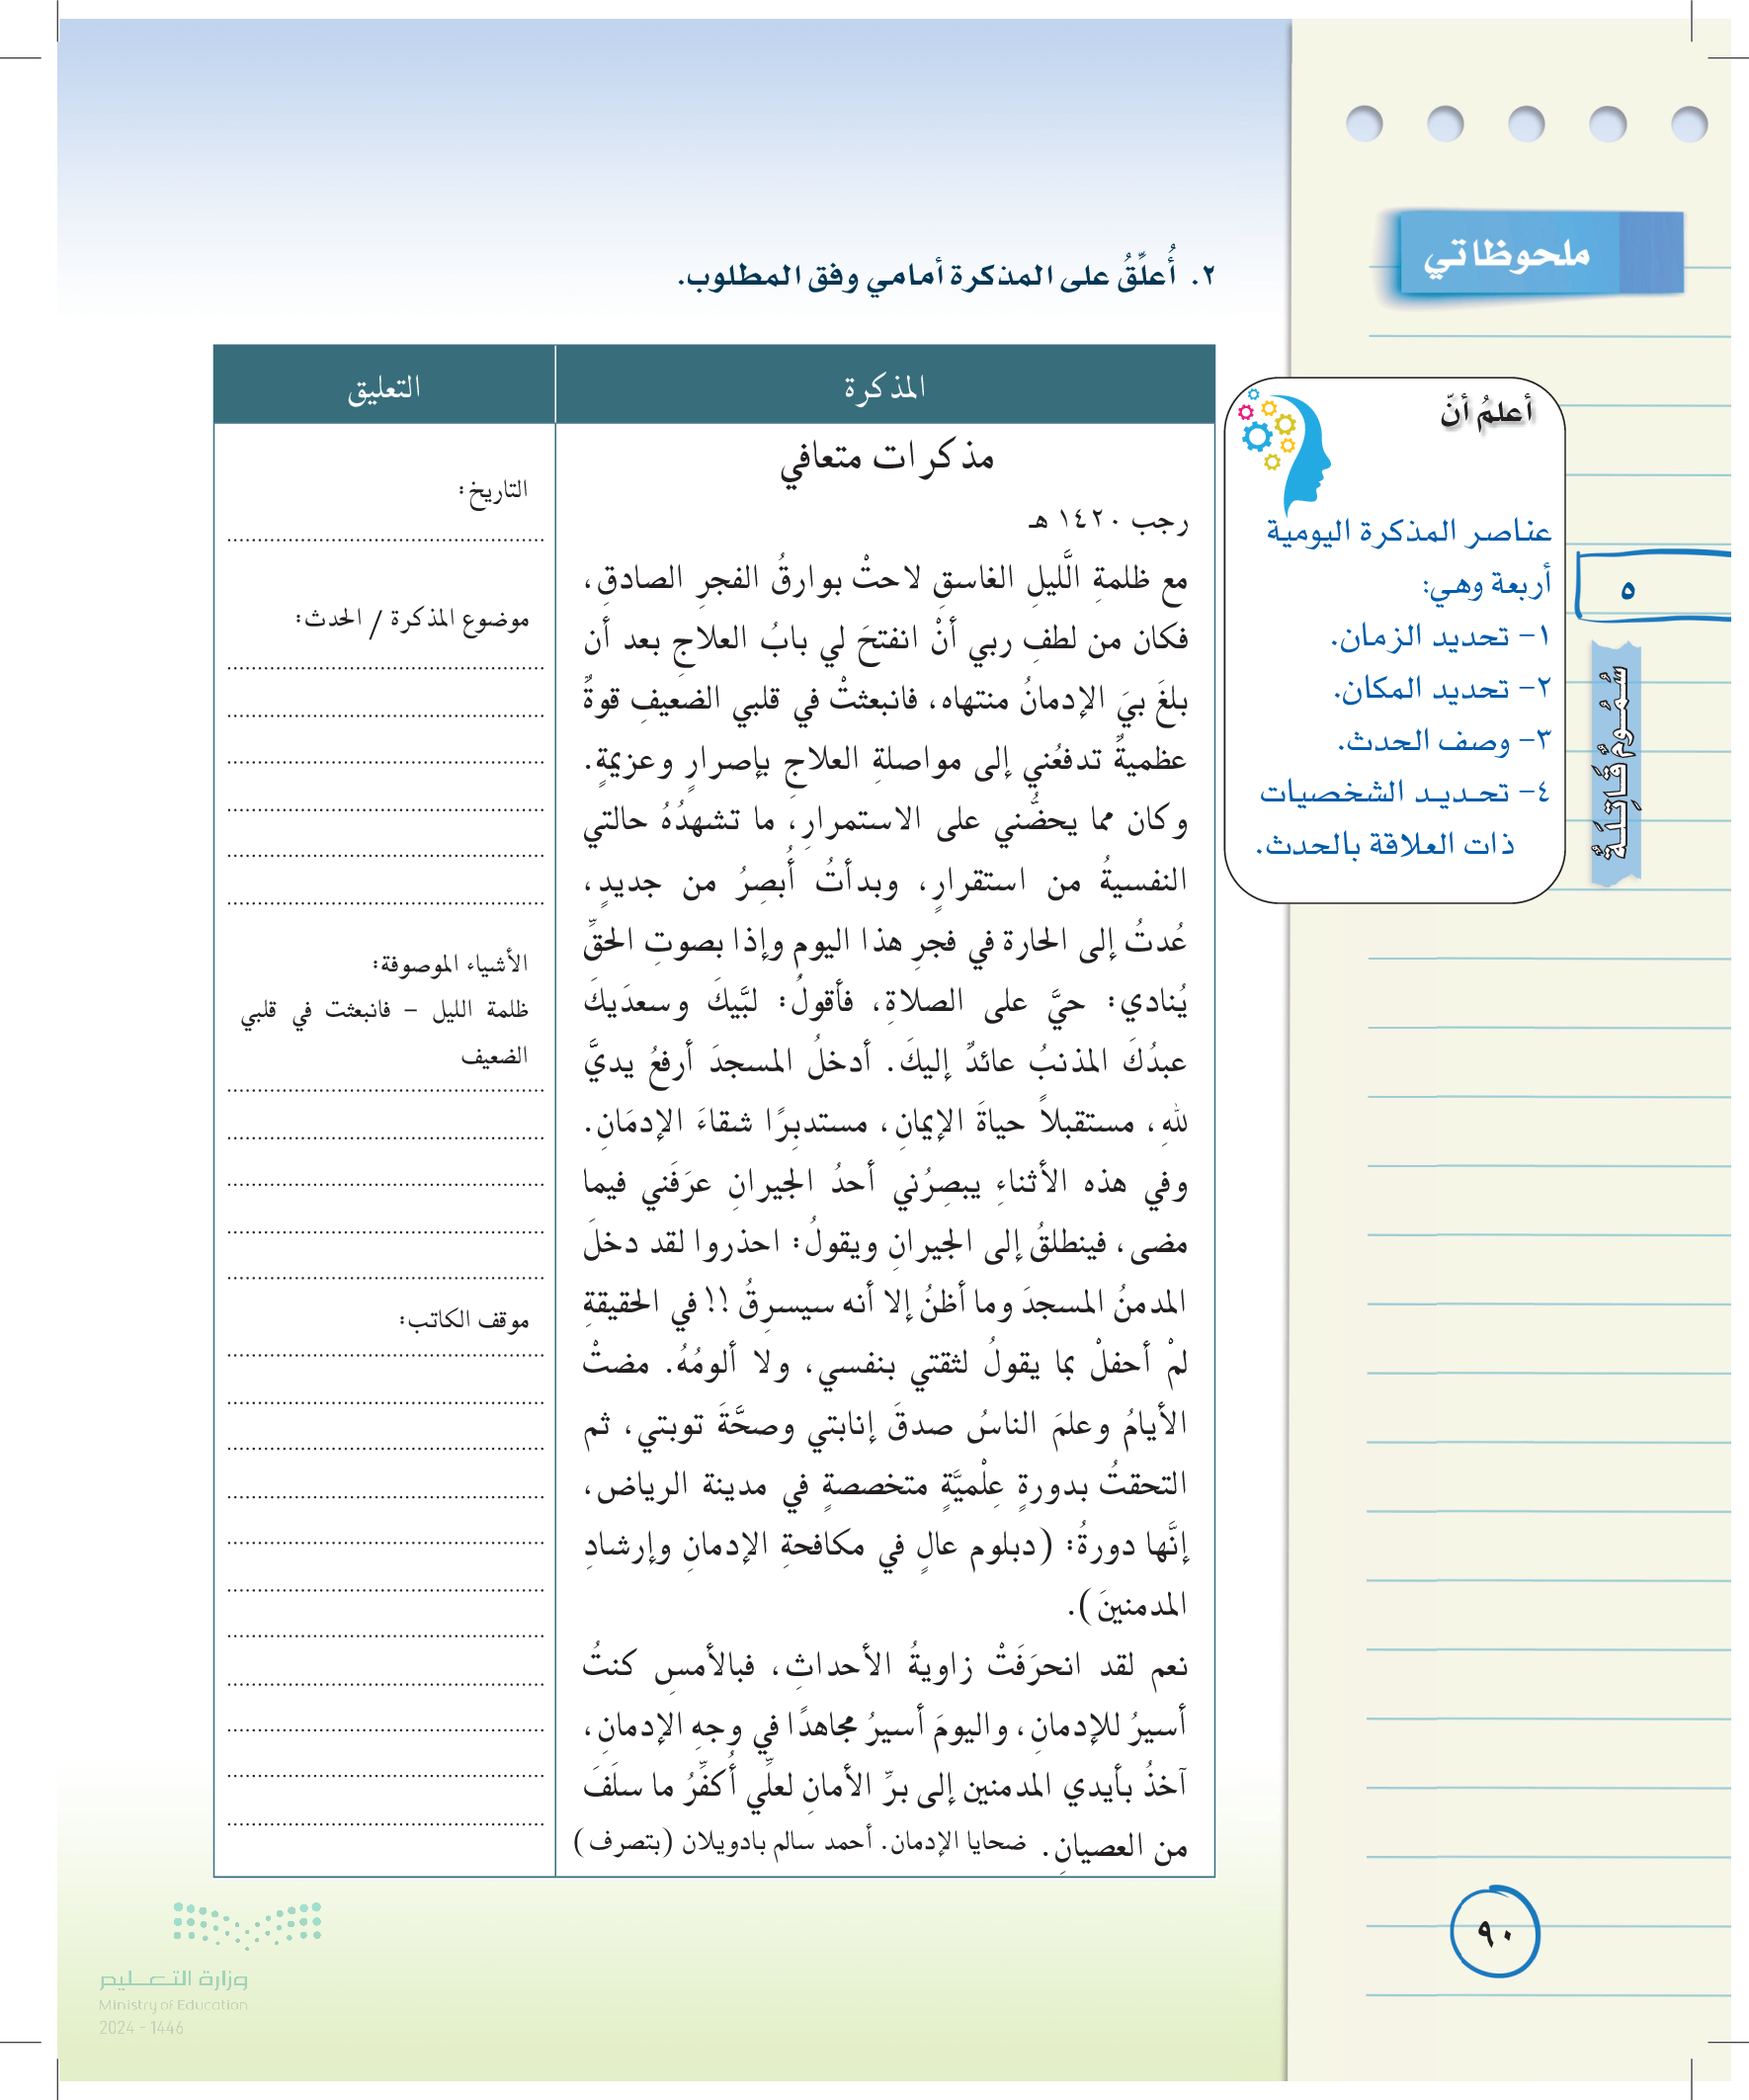 ملحوظاتي
٢. أُعلِّقُ على المذكرة أمامي وفق المطلوب.
أعلمُ أنّ
عناصر المذكرة اليومية
أربعة وهي:
١- تحديد الزمان.
٢- تحديد المكان.
٣- وصف الحدث.
٤- تحـديـد الشخصيات
ذات العلاقة بالحدث.
٥
سُمُومٌ قَاتِلَةٌ
المذكرة
مذكرات متعافي
رجب ١٤٢٠ هـ
مع ظلمةِ الَّليلِ الغاسقِ لاحتْ بوارقُ الفجرِ الصادقِ،
فكان من لطفِ ربي أنْ انفتحَ لي بابُ العلاجِ بعد أن
بلغَ بيَ الإدمانُ منتهاه، فانبعثتْ في قلبي الضعيفِ قوةٌ
عظميةٌ تدفعُني إلى مواصلةِ العلاجِ بإصرارٍ وعزيمةٍ.
وكان مما يحضُّني على الاستمرارِ، ما تشهدُهُ حالتي
النفسيةُ من استقرارٍ، وبدأتُ أُبصِرُ من جديدٍ،
عُدتُ إلى الحارة في فجرِ هذا اليوم وإذا بصوتِ الحقِّ
يُنادي: حيَّ على الصلاةِ، فأقولُ: لبَّيكَ وسعدَيكَ
عبدُكَ المذنبُ عائدٌ إليكَ. أدخلُ المسجدَ أرفعُ يديَّ
للهِ، مستقبلاً حياةَ الإيمانِ، مستدبِرًا شقاءَ الإدمَانِ.
وفي هذه الأثناءِ يبصِرُني أحدُ الجيرانِ عرَفَني فيما
مضى، فينطلقُ إلى الجيرانِ ويقولُ: احذروا لقد دخلَ
المدمنُ المسجدَ وما أظنُ إلا أنه سيسرِقُ !! في الحقيقةِ
لمْ أحفلْ بما يقولُ لثقتي بنفسي، ولا ألومُهُ. مضتْ
الأيامُ وعلمَ الناسُ صدقَ إنابتي وصحَّةَ توبتي، ثم
التحقتُ بدورةٍ عِلْميَّةٍ متخصصةٍ في مدينة الرياض،
إنَّها دورةُ: (دبلوم عالٍ في مكافحةِ الإدمانِ وإرشادِ
المدمنينَ).
نعم لقد انحرَفَتْ زاويةُ الأحداثِ، فبالأمسِ كنتُ
أسيرُ للإدمانِ، واليومَ أسيرُ مجاهدًا في وجهِ الإدمانِ،
آخذُ بأيدي المدمنين إلى برِّ الأمانِ لعلِّي أُكفِّرُ ما سلَفَ
من العصيانِ. ضحايا الإدمان. أحمد سالم بادويلان (بتصرف)
التعليق
التاريخ:
موضوع المذكرة / الحدث:
الأشياء الموصوفة:
ظلمة الليل – فانبعثت في قلبي
الضعيف
موقف الكاتب:
٩٠
وزارة التـعـــليم
Ministry of Education
2024 - 1446